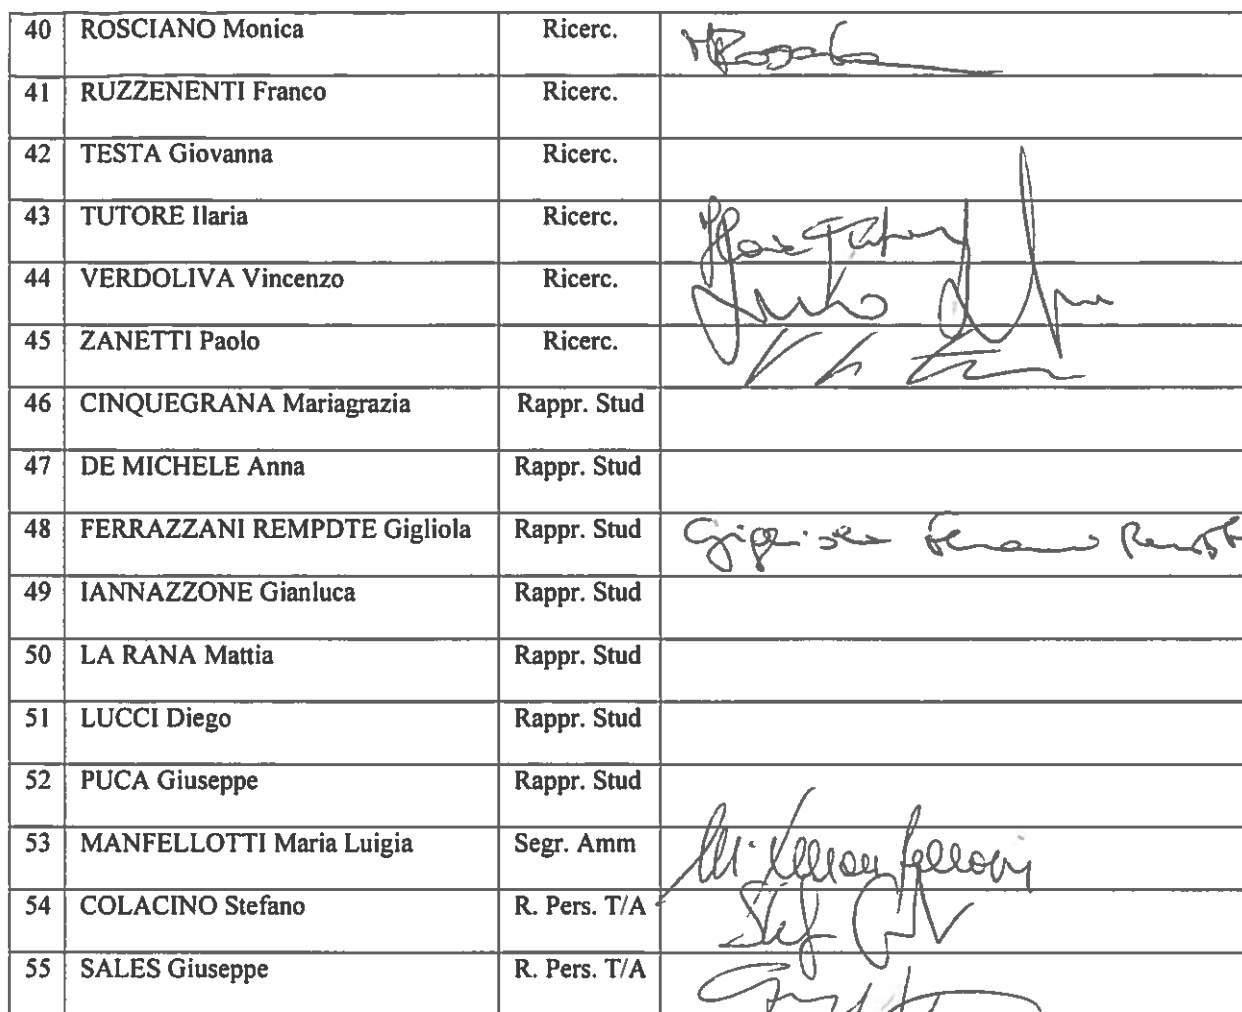 40 ROSCIANO Monica Ricerc.
41 RUZZENENTI Franco Ricerc.
42 TESTA Giovanna Ricerc.
43 TUTORE Ilaria Ricerc. Ilaria Tutore
44 VERDOLIVA Vincenzo Ricerc.
45 ZANETTI Paolo Ricerc.
46 CINQUEGRANA Mariagrazia Rappr. Stud
47 DE MICHELE Anna Rappr. Stud
48 FERRAZZANI REMPDTE Gigliola Rappr. Stud
49 IANNAZZONE Gianluca Rappr. Stud
50 LA RANA Mattia Rappr. Stud
51 LUCCI Diego Rappr. Stud
52 PUCA Giuseppe Rappr. Stud
53 MANFELLOTTI Maria Luigia Segr. Amm
54 COLACINO Stefano R. Pers. T/A
55 SALES Giuseppe R. Pers. T/A